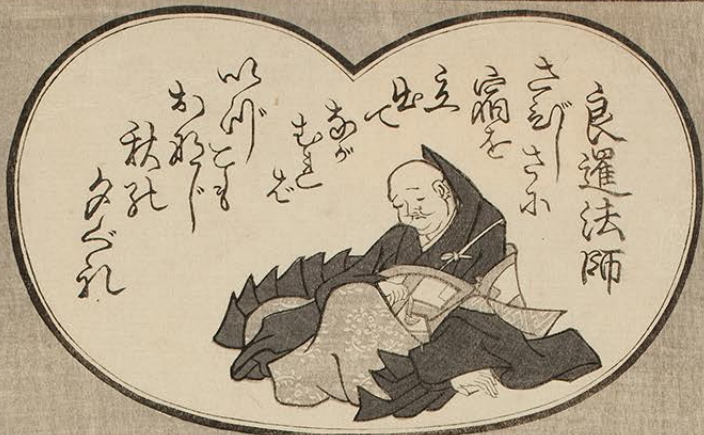 良暹法師
さびしさに
宿を
立
出て
なが
むれ
ば
いづこも
おなじ
秋の
夕ぐれ